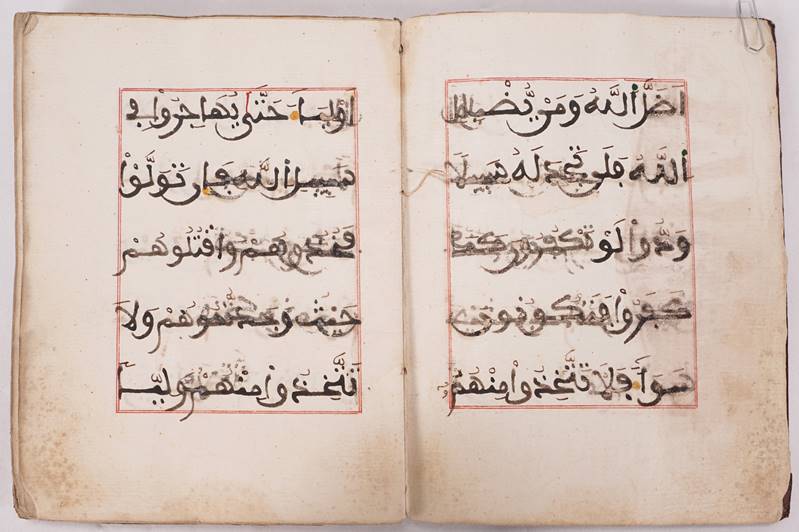 اَضَلَّ اَللَّهُ وَمَنْ يُّضْلِلِ
اِللَّهُ فَلَن تَجِدَ لَهُ سَبِيلًا
وَدُّواْ لَوْ تَكْفُرُونَ كَمَا
كَفَرُواْ فَتَكُونُونَ
سَوَآءً فَلَا تَتَّخِذُواْ مِنْهُمُ
أَوْلِيَآءَ حَتَّىٰ يُهَاجِرُواْ فِي
سَبِيلِ اِللَّهِ فَإِن تَوَلَّوْاْ
فَخُذُوهُمْ وَاقْتُلُوهُمْ
حَيْثُ وَجَدتُّمُوهُمْ وَلَا
تَتَّخِذُواْ مِنْهُمْ وَلِيًّا